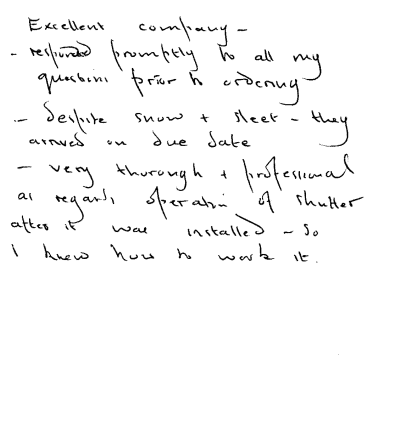 Excellent company -
- responded promptly to all my
questions prior to ordering
- despite snow + sleet - they
arrived on due date
- very thorough + professional
as regards operation of shutter
after it was installed - so
I knew how to work it.